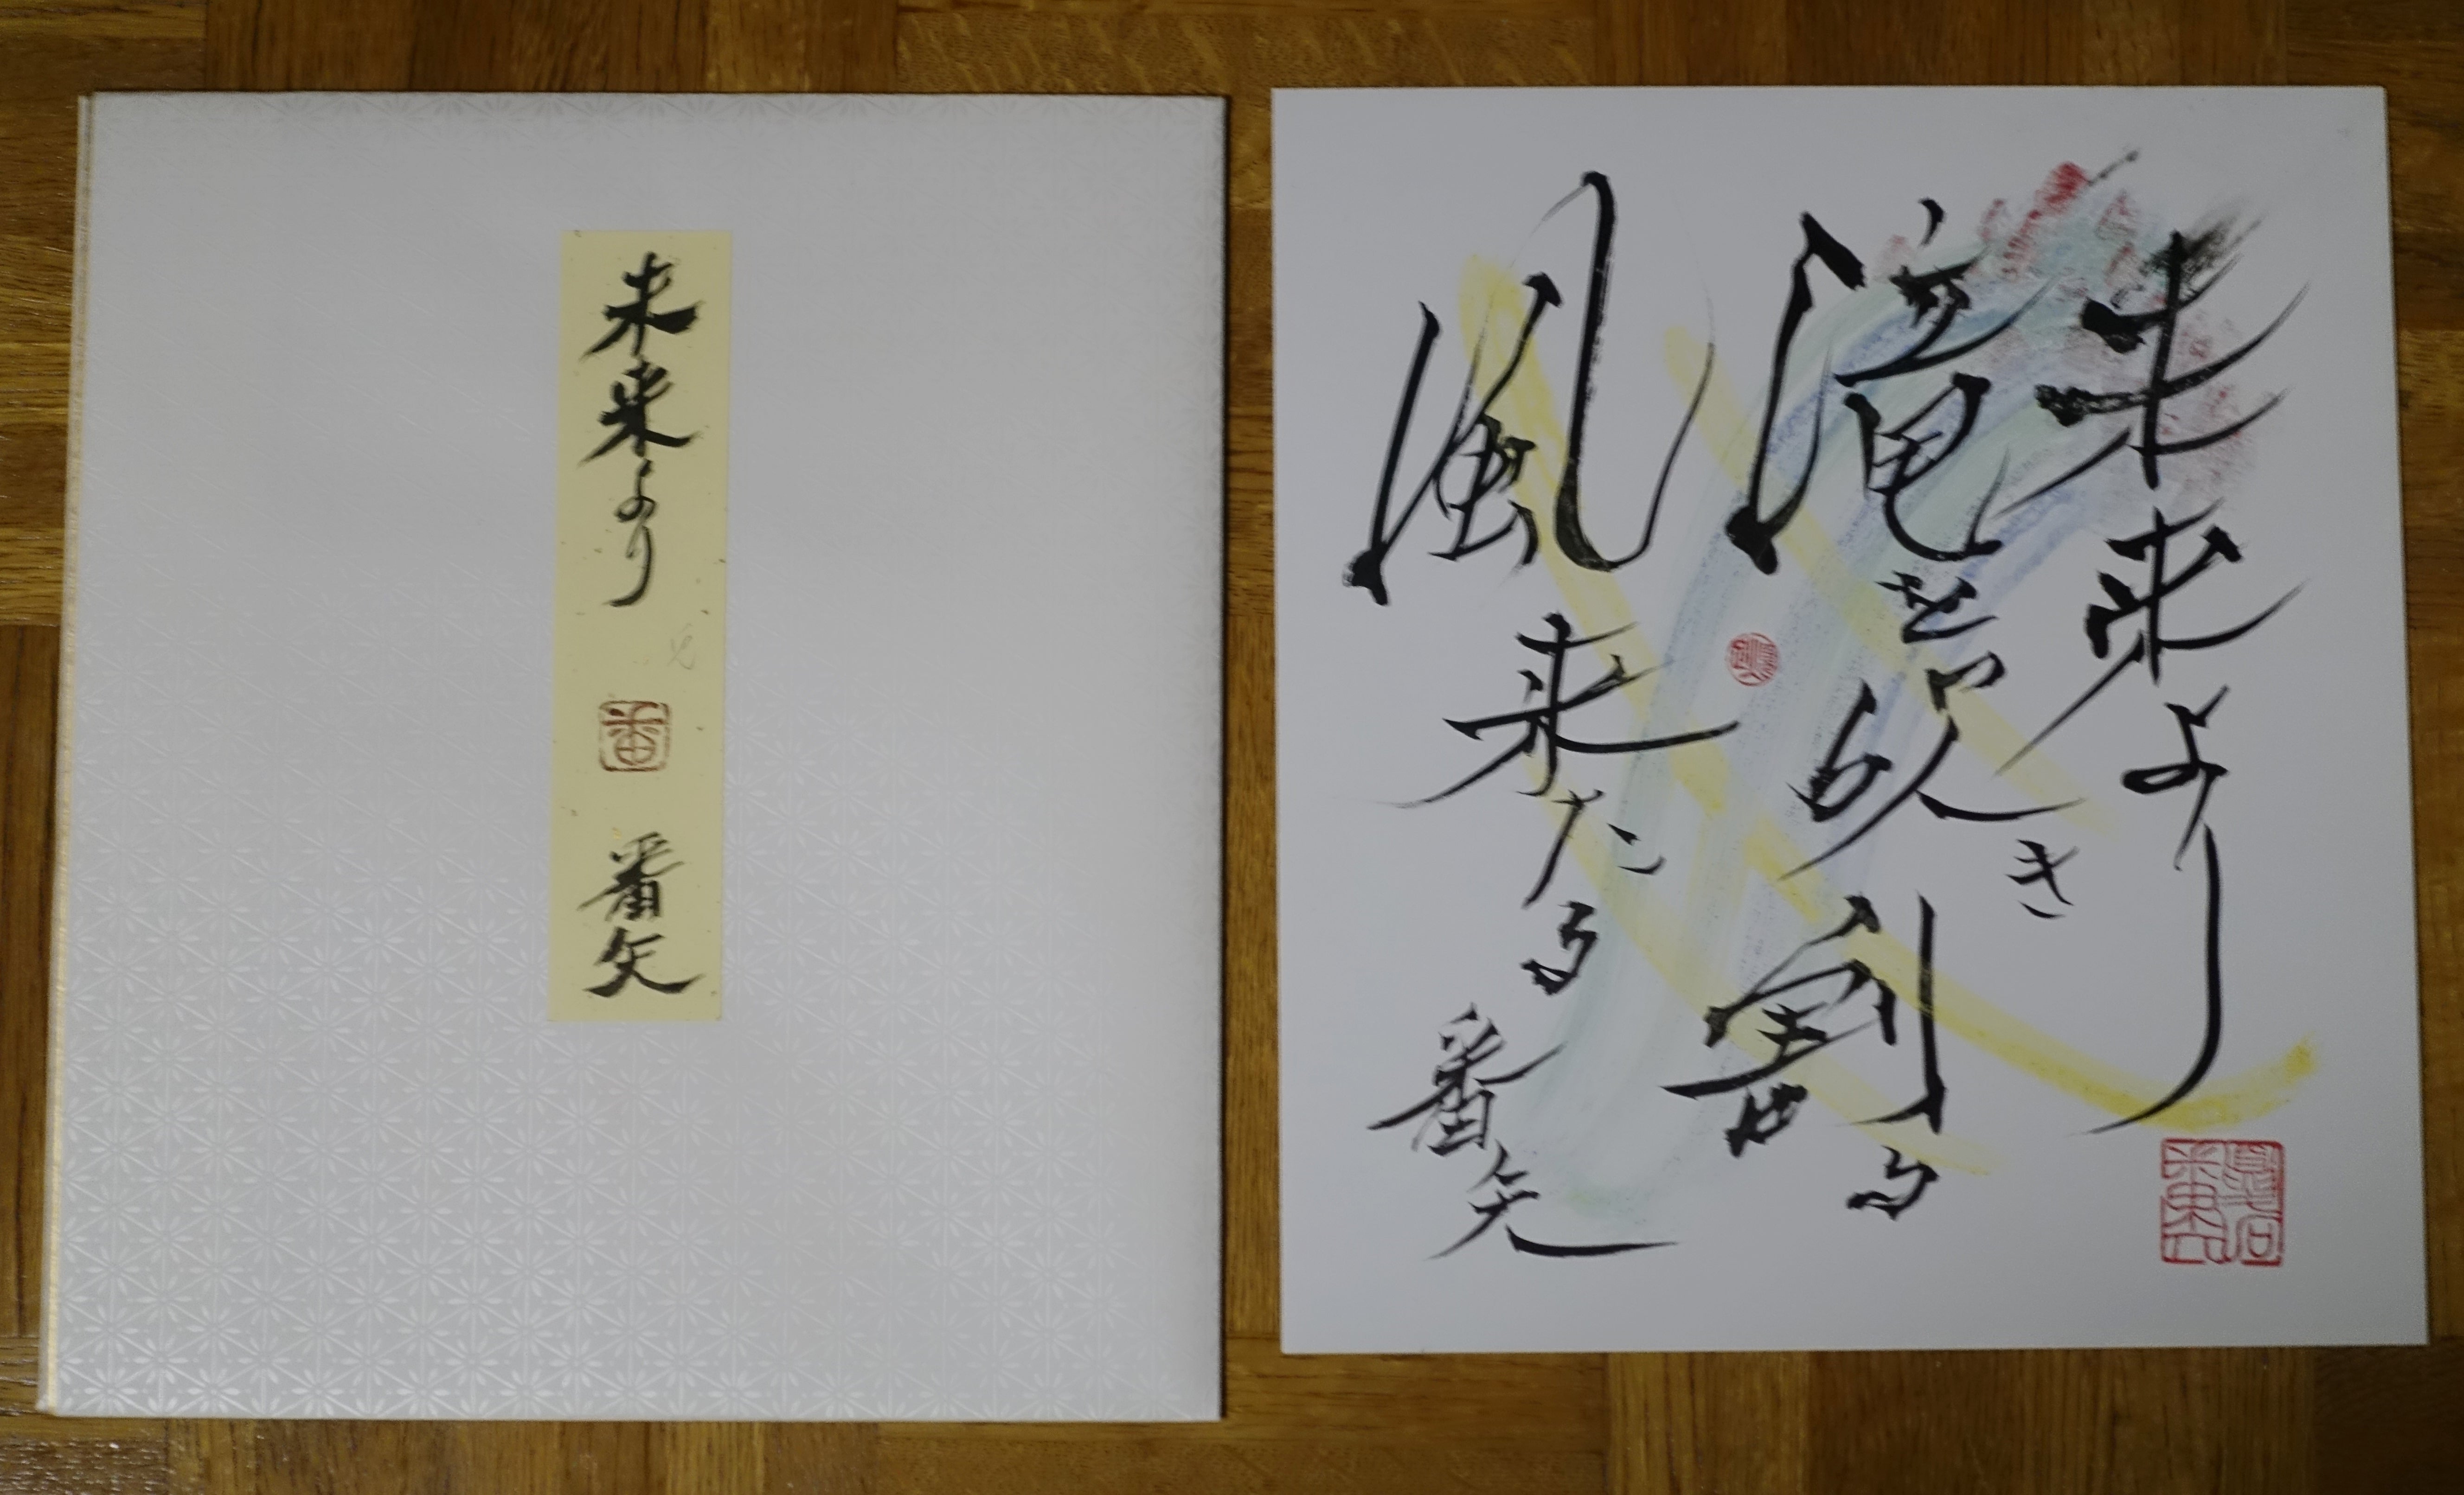 未来より
番
番矢
未来より
滝を吹き割る
風来たる
番矢